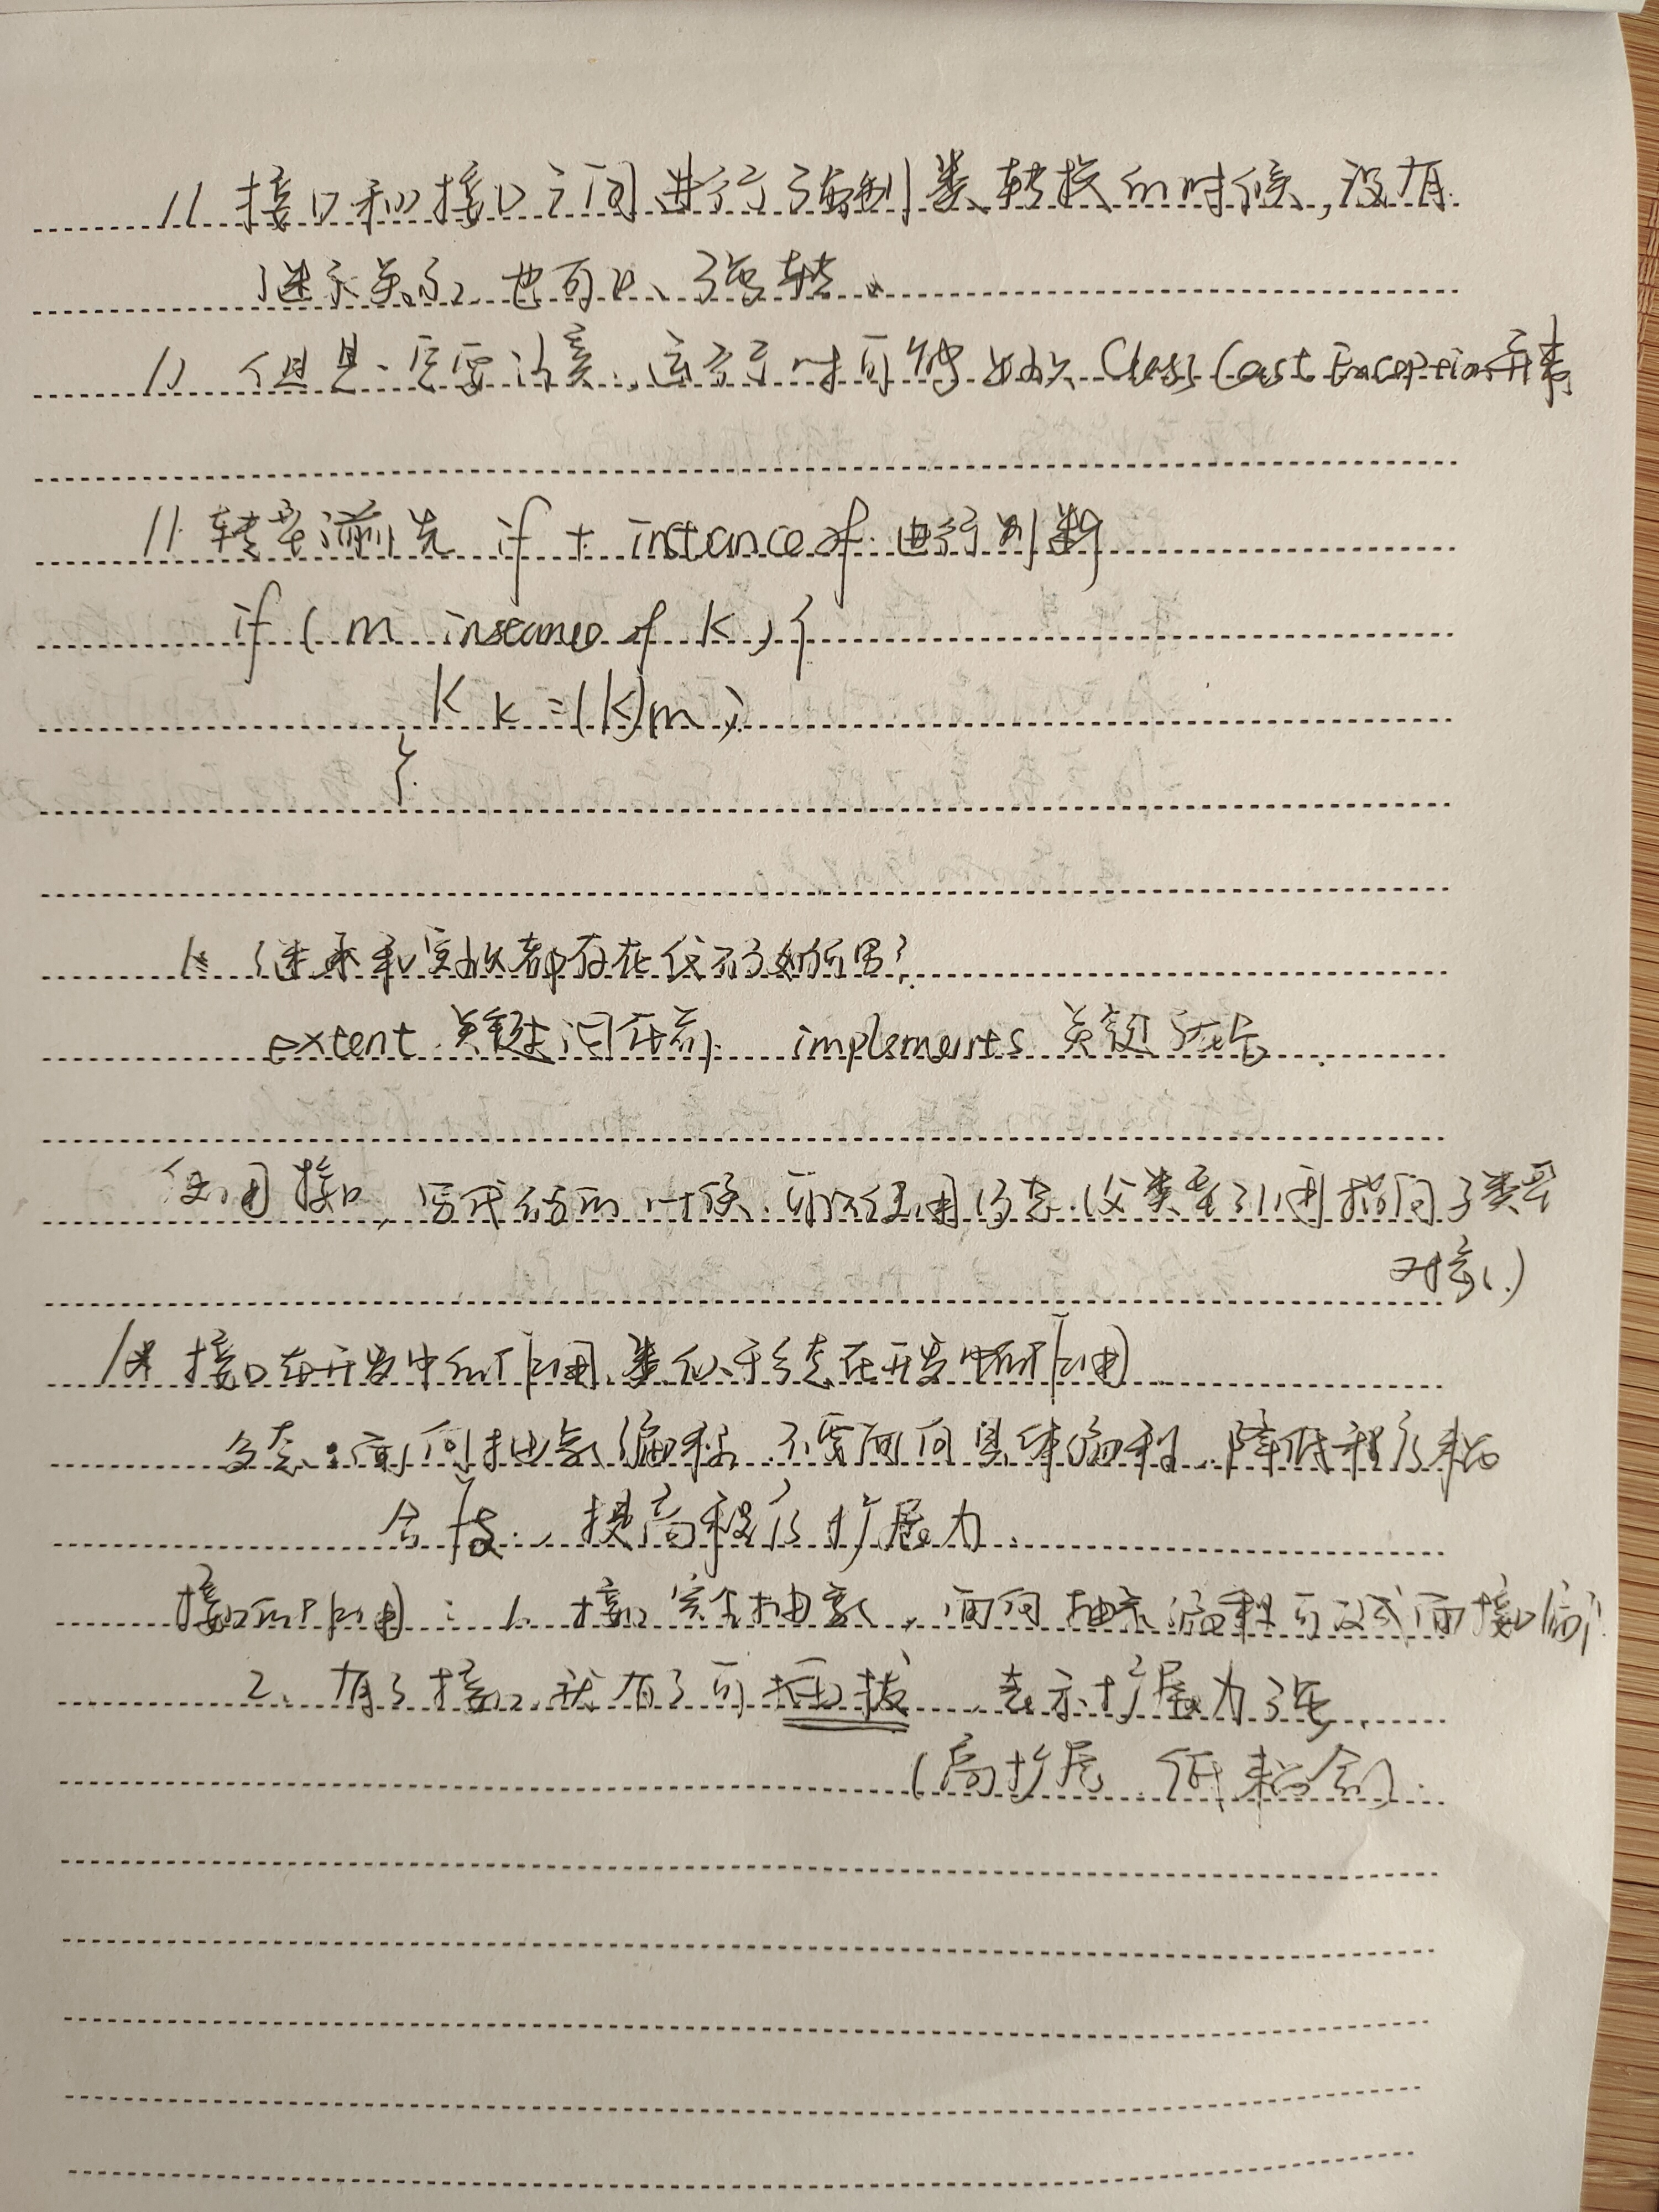 // 接口和接口之间进行强制类转换的时候,没有
继承关系,也可以强转。
// 但是一定要注意,运行时可能出现 ClassCastException异常
// 转型之前先 if + instanceof 进行判断
if ( m instanceof K ) {
K k = (K)m;
}
继承和实现都存在代码如何写?
extent 关键词在前 implements 关键词在后.
使用接口,写代码的时候,可以使用多态(父类型引用指向子类型
对象()
接口在开发中的作用,类似于多态在开发中的作用
多态:面向抽象编程,不要面向具体编程,降低程序耦
合度,提高程序扩展力.
接口的作用:1. 接口完全抽象,面向抽象编程可改成面接口编
2. 有了接口就有了可插拔 表示扩展力强.
(高扩展 低耦合).